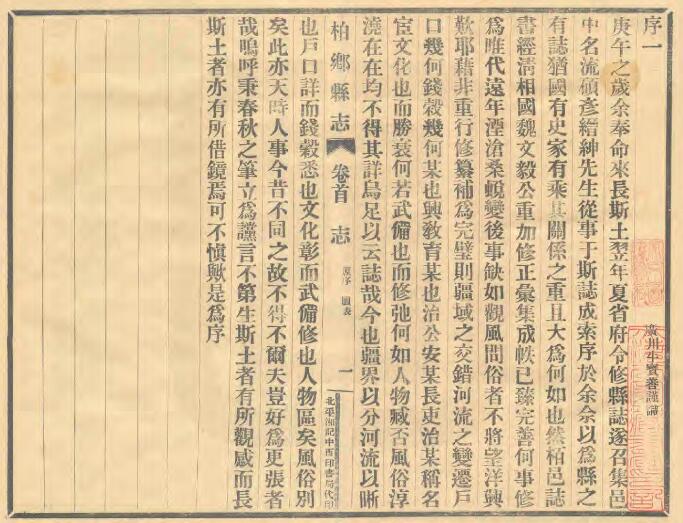 序一
庚午之歲余奉命來長斯土翌年夏省府令修縣誌遂召集邑
中名流碩彥縉紳先生從事于斯誌成索序於余余以爲縣之
有誌猶國有史家有乘其關係之重且大爲何如也然柏邑誌
書經淸相國魏文毅公重加修正彙集成帙已臻完善何事修
爲唯代遠年湮滄桑蛻變後事缺如觀風問俗者不將望洋興
歎耶藉非重行修纂補爲完璧則疆域之交錯河流之變遷戶
口幾何錢穀幾何某也興敎育某也治公安某長吏治某稱名
宦文化也而勝衰何若武備也而修弛何如人物臧否風俗淳
澆在在均不得其詳烏足以云誌哉今也疆界以分河流以晰
柏鄕縣志
卷首 志
原序 圖表
一
北平湘記中西印書局代印
也戶口詳而錢穀悉也文化彰而武備修也人物區矣風俗別
矣此亦天時人事今昔不同之故不得不爾夫豈好爲更張者
哉嗚呼秉春秋之筆立爲讜言不第生斯土者有所觀感而長
斯土者亦有所借鏡焉可不愼歟是爲序